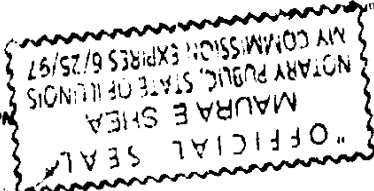 "OFFICIAL SEAL
MAURA E SHEA
NOTARY PUBLIC, STATE OF ILLINOIS
MY COMMISSION EXPIRES 6/25/97